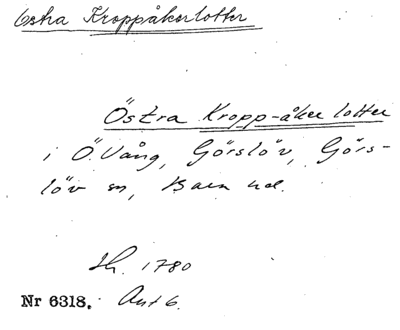 Östra Kroppåkerlotter
Östra Kropp-åker lotter
i Ö. Vång, Görslöv, Görs-
löv sn, Bara hd.
Sh. 1780
Nr 6318. Akt 6.